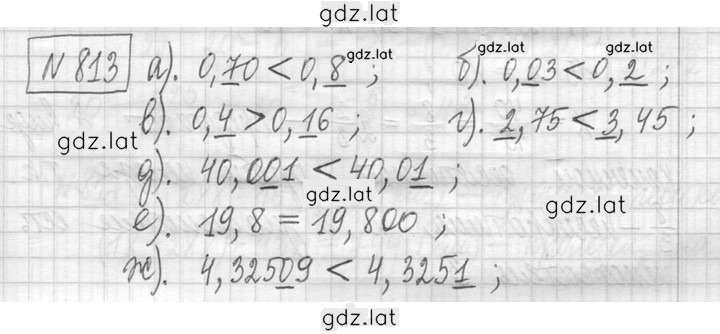 gdz.lat
№ 813 а). 0,70 < 0,8 ; gdz.lat б). gdz.lat 0,03 < 0,2 ; gdz.lat
gdz.lat в). 0,4 > 0,16 ; г). 2,75 < 3,45 ;
д). 40,001 < 40,01 ;
gdz.lat
е). 19,8 = 19,800 ; gdz.lat
ж). 4,32509 < 4,3251 ;
gdz.lat